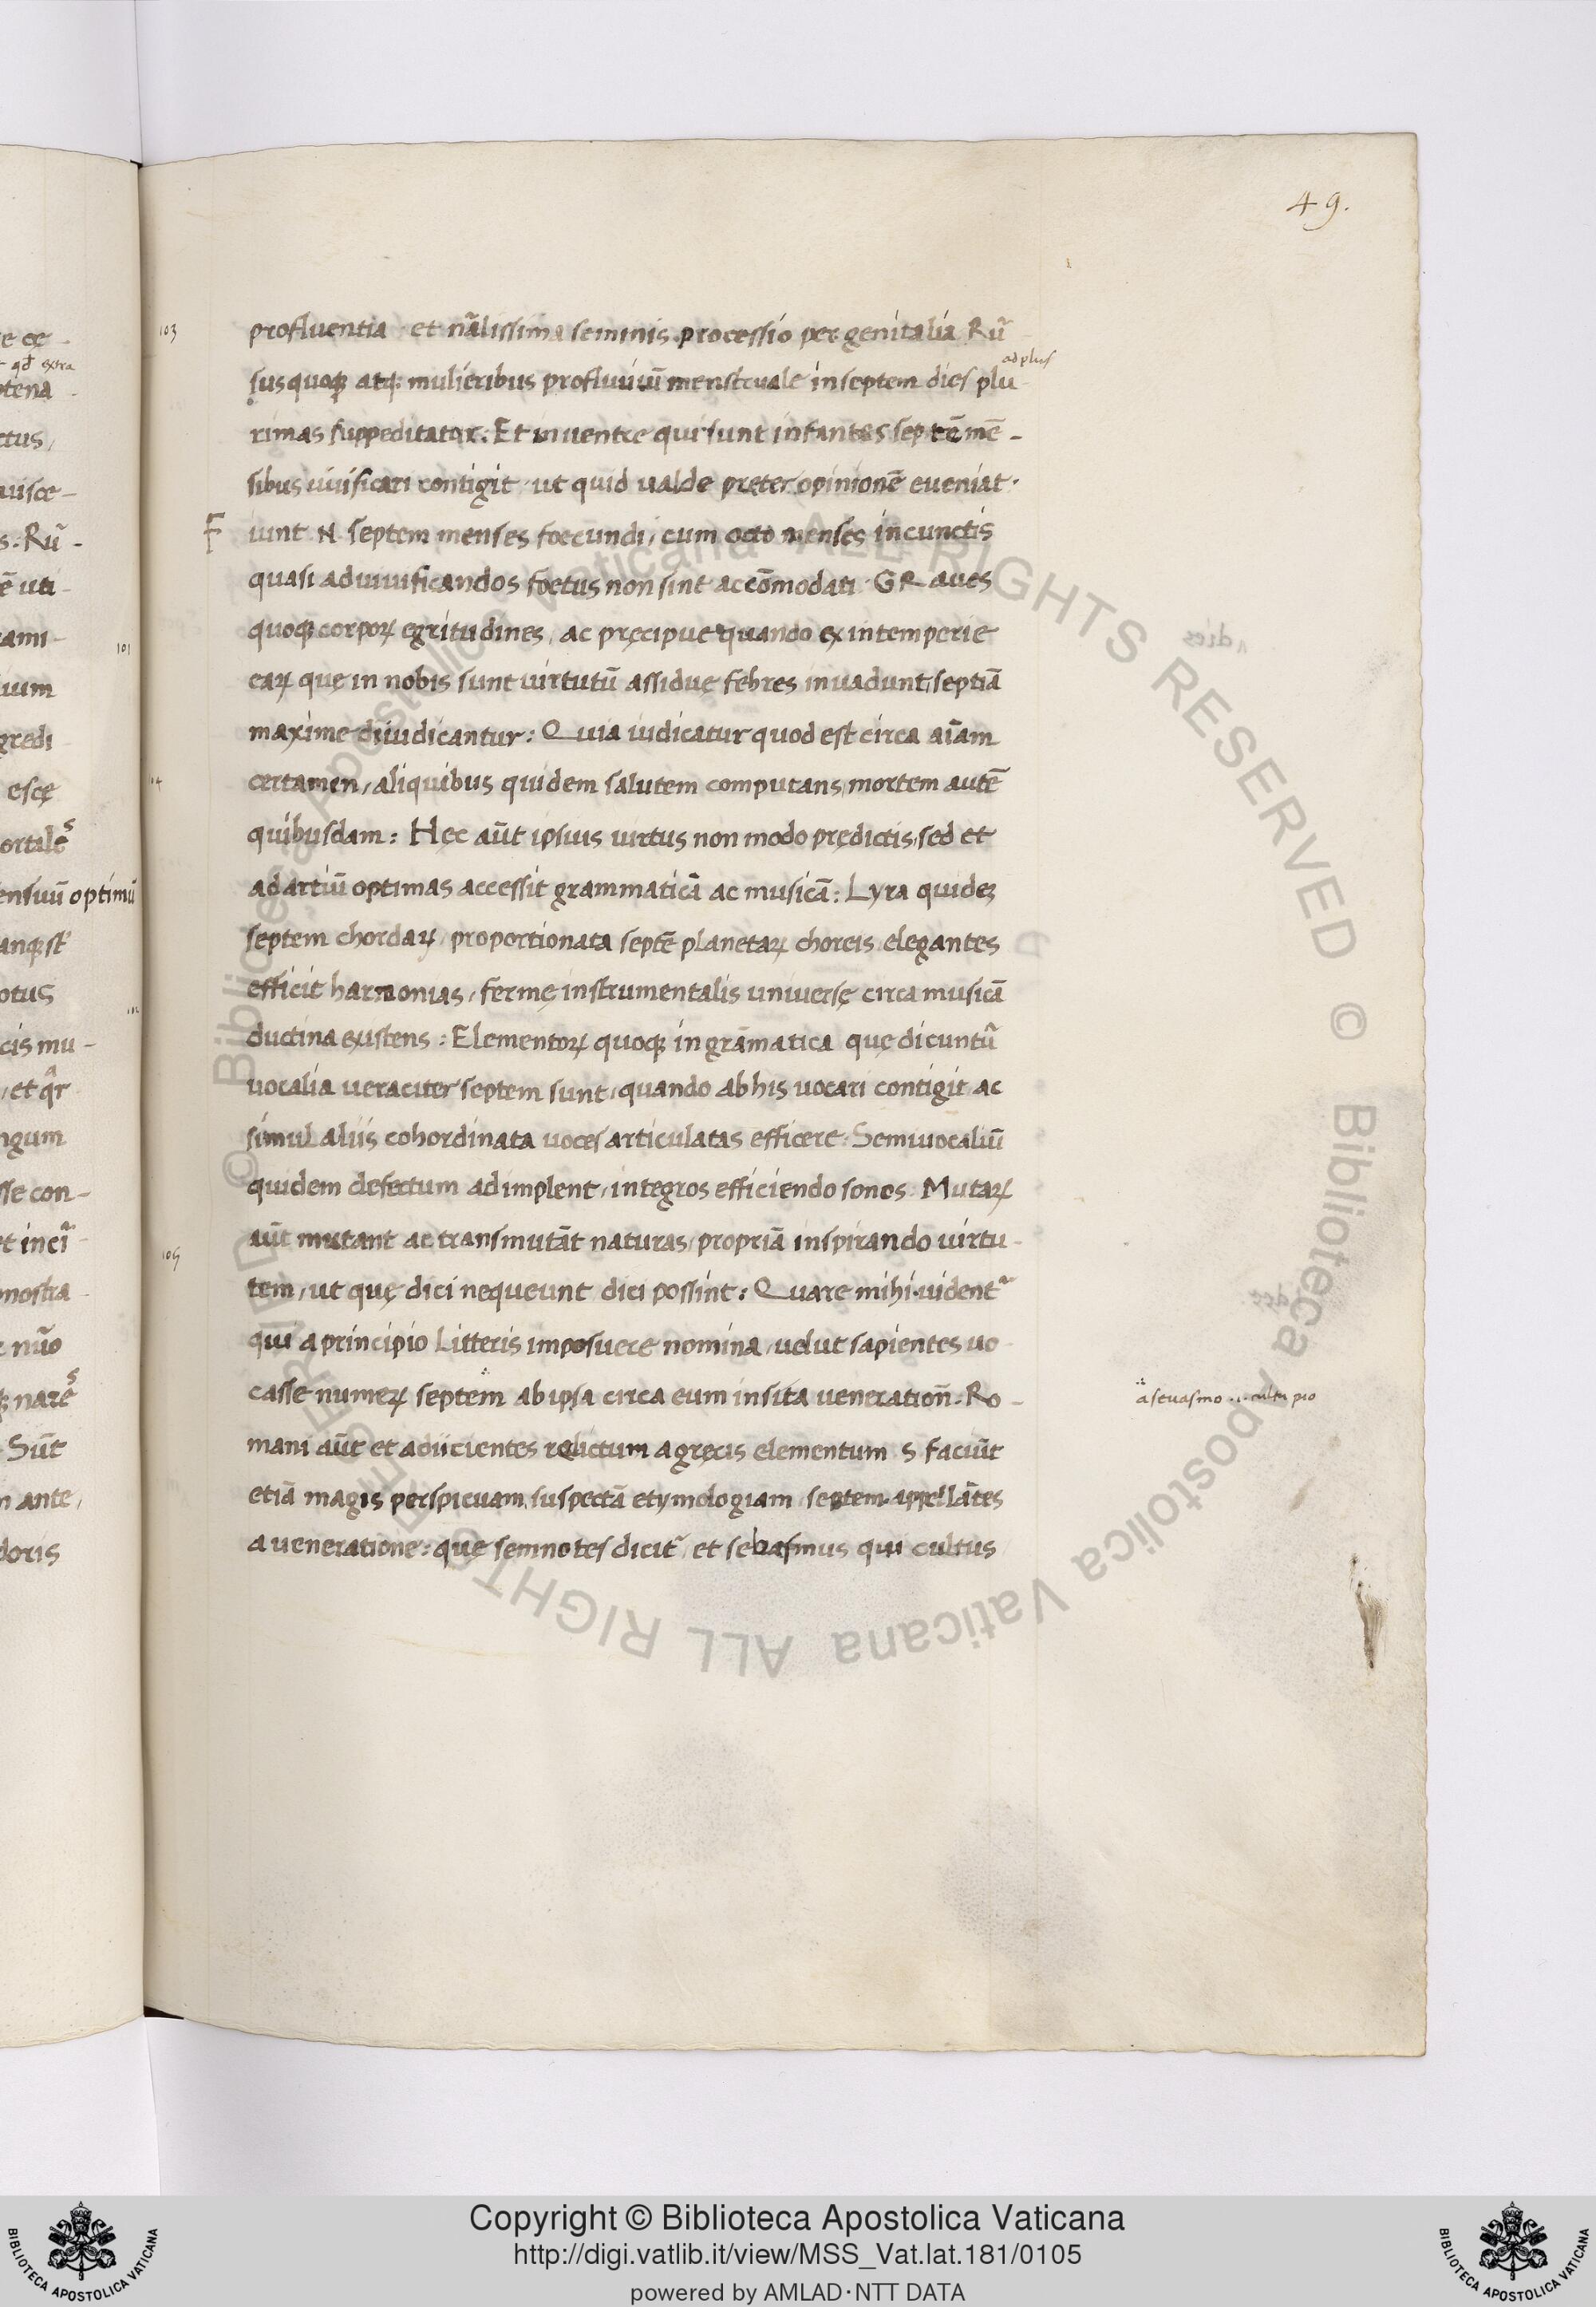 49.
103
profluentia et nãlissima seminis processio per genitalia Rũ
ad plus
sus quoqꝫ atqꝫ mulieribus profluuiũ menstruale in septem dies plu-
rimas suppeditatur: Et in uentre qui sunt infantes septẽ mẽ-
sibus uiuificari contigit ut quid ualde preter opinionẽ eueniat.
F iunt .N. septem menses foecundi, cum octo menses in cunctis
quasi ad uiuificandos foetus non sint accõmodati. GRaues
quoqꝫ corpoꝝ egritudines, ac pręcipue quando ex intemperie
eaꝝ quę in nobis sunt uirtutũ assiduę febres inuadunt, septiã
maxime diiudicantur: Quia iudicatur quod est circa aĩam
certamen, aliquibus quidem salutem computans, mortem autẽ
quibusdam: Hęc aũt ipsius uirtus non modo prędictis, sed et
ad artiũ optimas accessit grammaticã ac musicã: Lyra quideꝫ
septem chordaꝝ, proportionata septẽ planetaꝝ choreis, elegantes
efficit harmonias, fermę instrumentalis uniuersę circa musicã
ductina existens: Elementoꝝ quoqꝫ in grãmatica quę dicunt᷑
uocalia ueraciter septem sunt, quando ab his uocari contigit ac
simul aliis cohordinata uoces articulatas efficere. Semiuocaliũ
quidem defectum adimplent, integros efficiendo sonos. Mutaꝝ
105
aũt mutant ac transmutãt naturas, propriã inspirando uirtu-
tem, ut quę dici nequeunt dici possint: Quare mihi uident᷑
qui a principio litteris imposuere nomina, uelut sapientes uo
casse numeꝝ septem ab ipsa circa eum insita ueneratioñ. Ro-
a seuasmo ... cultu pio
mani aũt et adiicientes relictum a gręcis elementum S faciũt
etiã magis perspicuam suspectã etymologiam septem appellãtes
a ueneratione: quę semnotes dicit᷑ et sebasmus qui cultus
Copyright © Biblioteca Apostolica Vaticana
http://digi.vatlib.it/view/MSS_Vat.lat.181/0105
powered by AMLAD·NTT DATA
BIBLIOTECA APOSTOLICA VATICANA
BIBLIOTECA APOSTOLICA VATICANA
© Biblioteca Apostolica Vaticana ALL RIGHTS RESERVED © Biblioteca Apostolica Vaticana ALL RIGHTS RESERVED